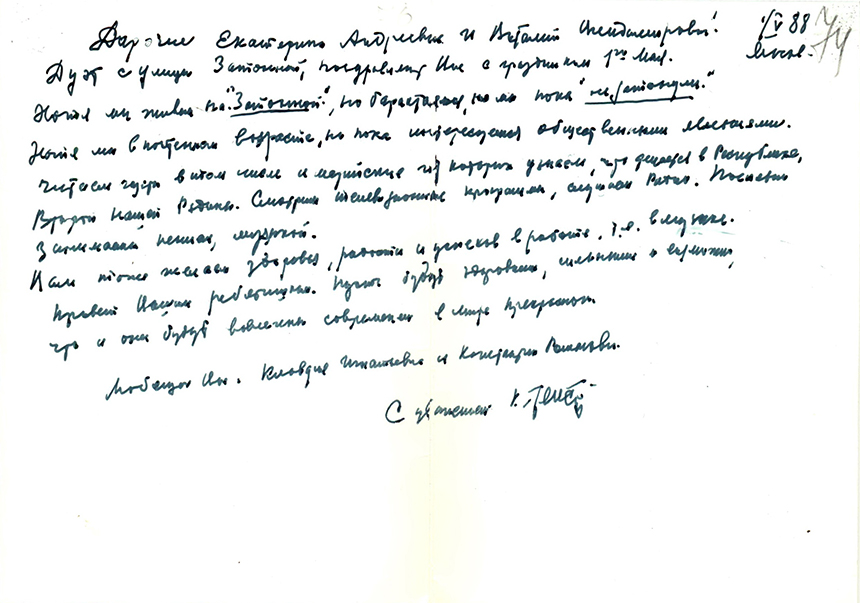 1/V 88
Дорогие Екатерина Андреевна и Виталий
Москв.
Дуэт с улицы Затонной, поздравляет Вас с праздником 1го Мая.
Хотя мы живём на "Затонной", но барахтаемся, но мы пока "не затонули."
Хотя мы в почтенном возрасте, но пока интересуемся общественными явлениями.
Читаем газеты в том числе и марийские из которых узнаем, что делается в Республике,
Второй нашей Родины. Смотрим телевизионные программы, слушаем Радио. Посильно
занимаемся пением, музыкой.
Вам тоже желаем здоровья, радости и успехов в работе, т.е. в музыке.
Привет Вашим ребятишкам. Пусть будут здоровыми, сильными и
что и они будут вовлечены современем в мир прекрасного.
Любящие Вас. Клавдия Игнатьевна и Константин
С уважением К.